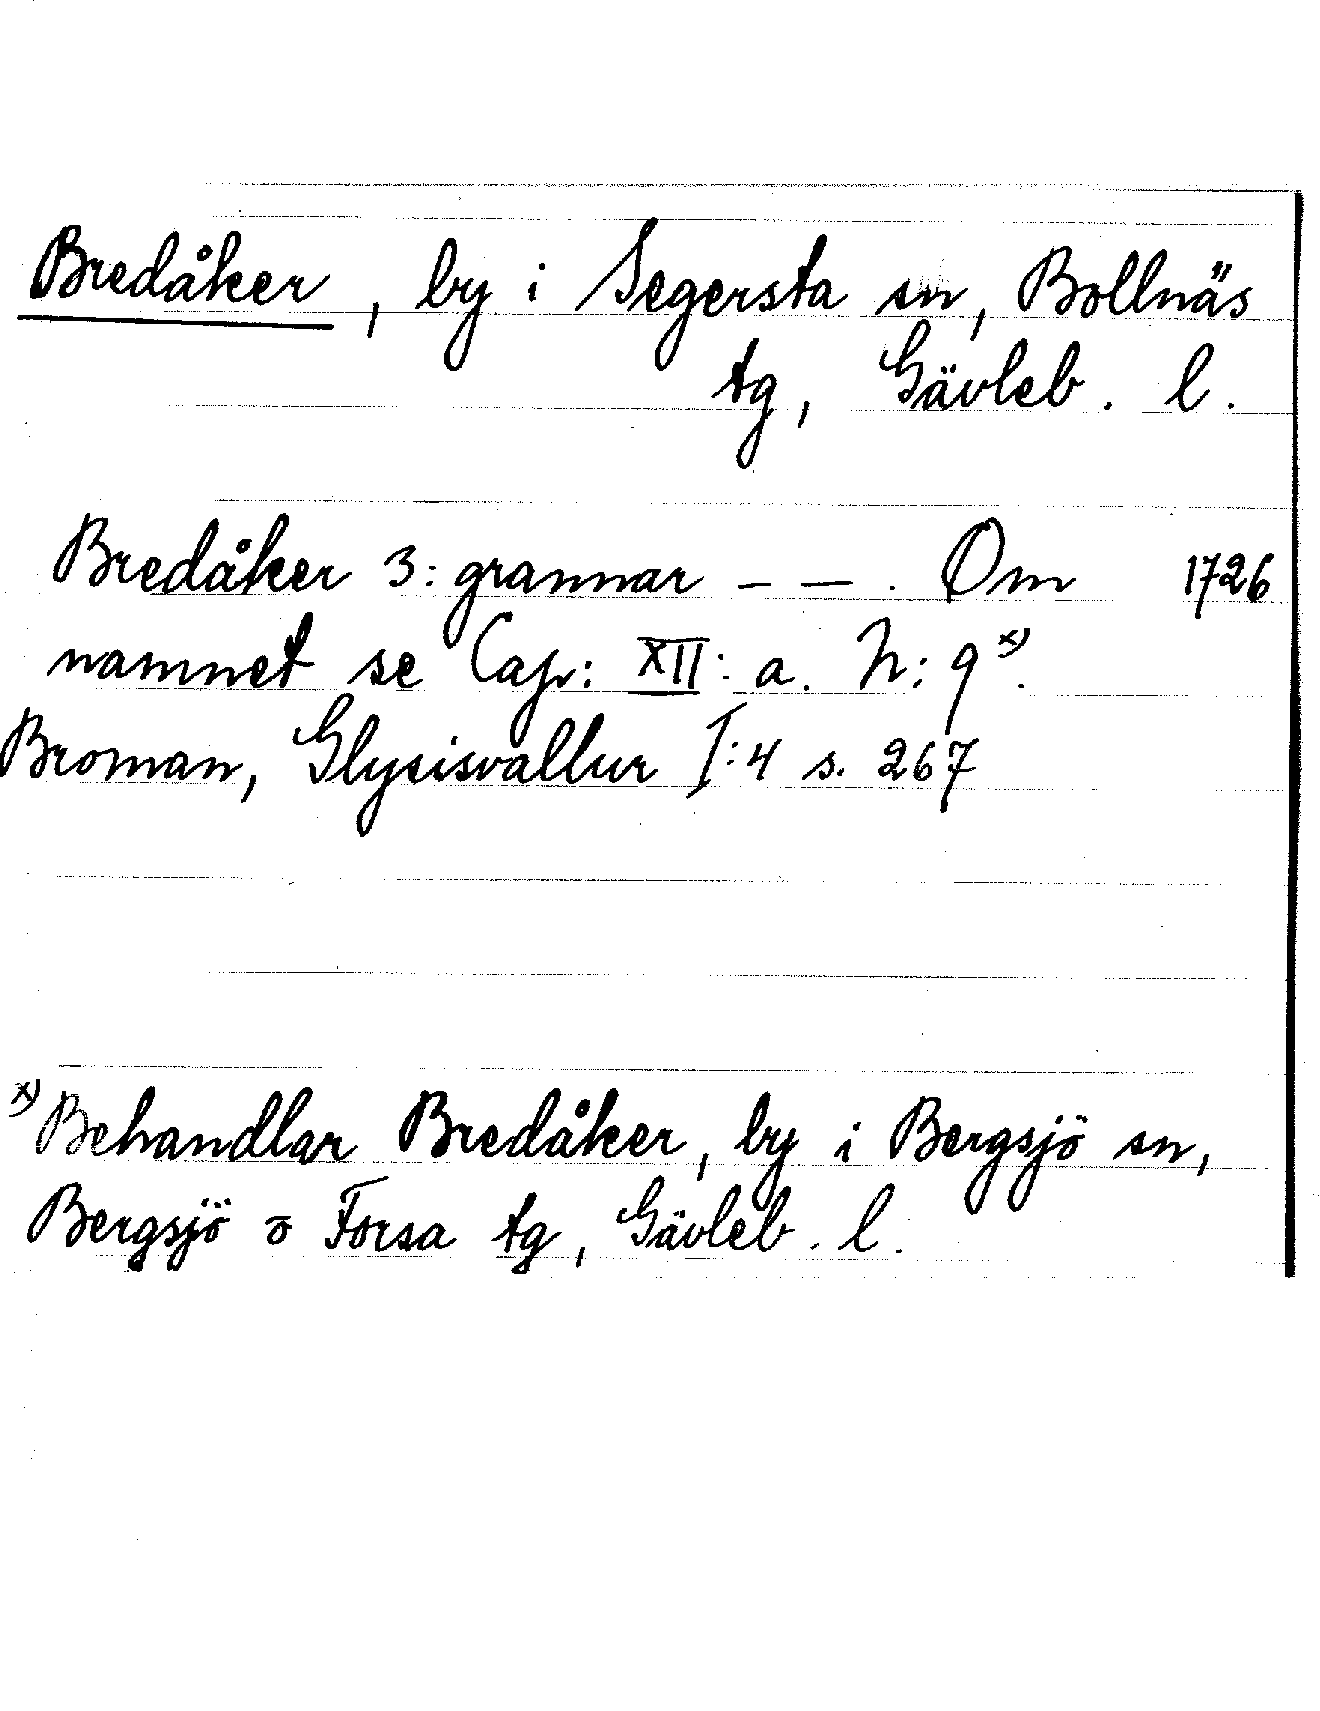 Bredåker, by i Segersta sn, Bollnäs
tg, Gävleb. l.
Bredåker 3: grannar – –. Om 1726
namnet se Cap: XII: a. N: 9 x).
Broman, Glysisvallur I:4 s. 267
x) Behandlar Bredåker, by i Bergsjö sn,
Bergsjö o Forsa tg, Gävleb. l.